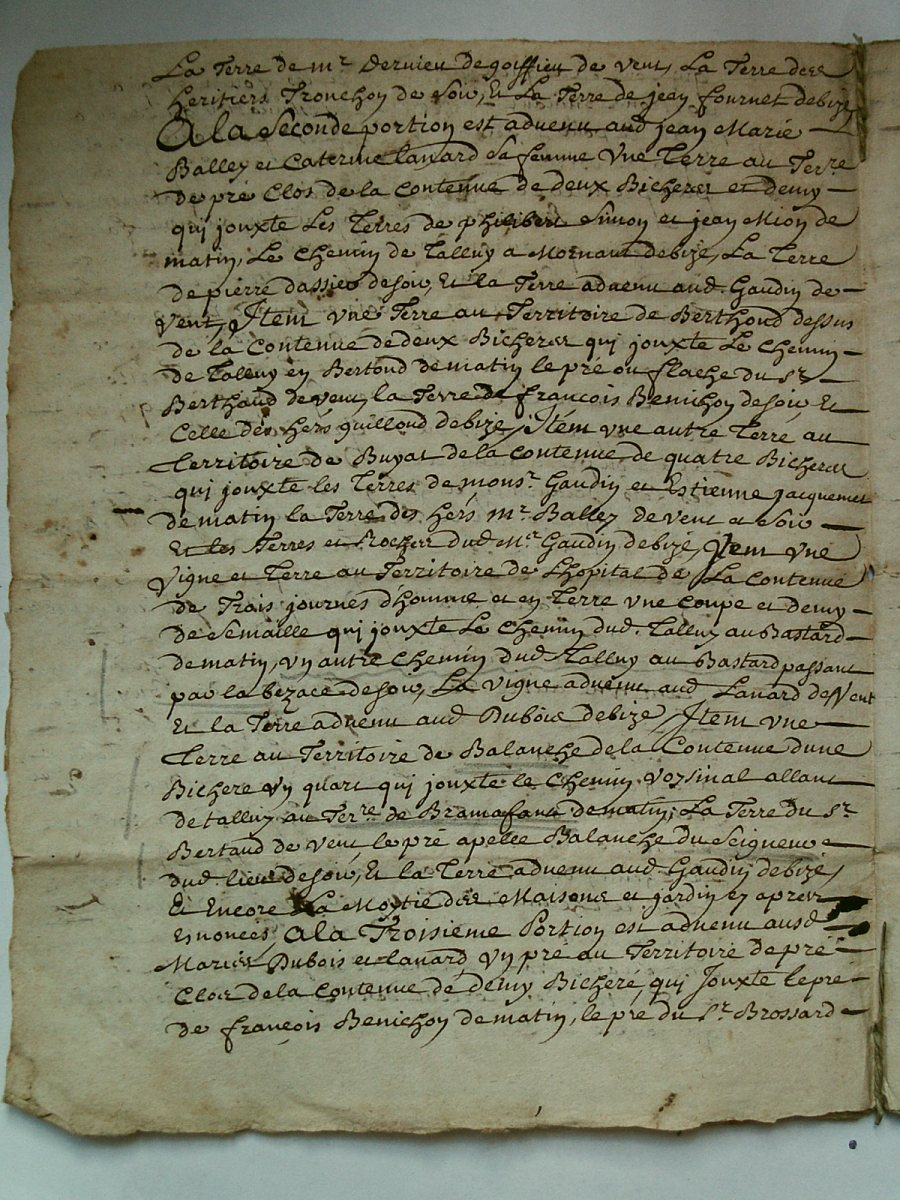 La Terre de mr Dernieu de goiffieu de vent, La Terre des
heritiers Tronchoy de soir, Et La Terre de jean fournet debize
A la Seconde portion est advenu aud jean Marie
Balley et Caterine lanard sa femme Vne Terre au Terre
De pré Clos de la Contenue de deux Bicheres et demy
qui jouxte Les Terres de philibert Simon et jean Mion de
matin, Le Chemin de Talluy a Mornant debize, La Terre
de pierre dassier desoir, Et la Terre advenu aud. Gaudin de
Vent, Item vne Terre au Territoire de Berthoud dessus
de la Contenue de deux Bicheres qui jouxte Le Chemin
de Talluy en Bertoud de matin le pré ou flache du sr
Berthaud de vent, la Terre de françois Benichoy desoir, Et
Celle des hers guilloud debize, Item vne autre Terre au
Territoire de Buyat de la contenue de quatre Bicheres
qui jouxte les Terres de monsr Gaudin et Estienne jacquemet
de matin la Terre des hers mr Balley de vent et soir
Et les Terres et Rocher dud Mr Gaudin debize, Item vne
Vigne et Terre au Territoire de Lhopital de La contenue
de Trois journes dhomme et en Terre vne coupe et demy
de Semaille qui jouxte Le Chemin dud. Talluy au Bastard
de matin, vn autre Chemin dud Talluy au Bastard passant
par la bezace de soir, La vigne advenu aud Lanard de Vent
Et la Terre advenu aud Dubois debize, Item vne
Terre au Territoire de Balanche de la Contenue dune
Bichere vn quart qui jouxte le Chemin voysinal allant
de talluy au Terre de Bramafant de matin; La Terre du Sr
Bertaud de Vent le pré apellé Balanche du Seigneur
dud. lieu desoir, Et la Terre advenu aud. Gaudin debize,
Et Encore La Moytié des Maisons et jardin cy apres
Enoncés, A la Troisieme Portion est advenu ausd
Maries Dubois et lanard vn pré au Territoire de pré
Clos de la contenue de demy Bicheré, qui Jouxte le pre
de françois Benichoy de matin, le pré du Sr Brossard